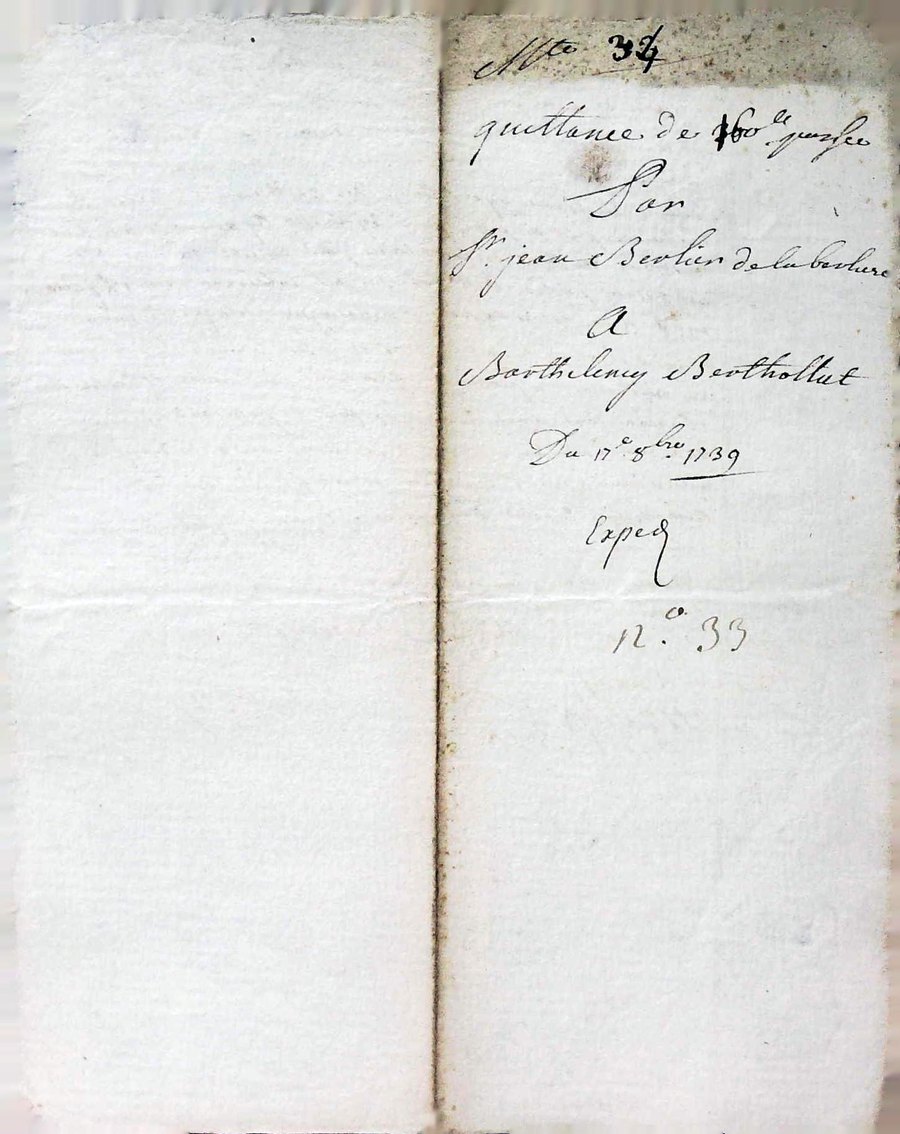 Nto 34
quittance de 160ll passée
Par
Sr. jean Berlier de la berliere
A
Barthelemy Berthollat
Du 17e 8bre 1739
Exped
No. 33